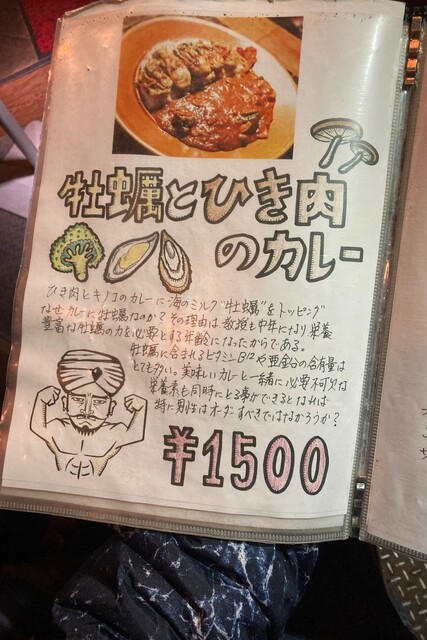 牡蠣とひき肉
のカレー
ひき肉とキノコのカレーに海のミルク"牡蠣"をトッピング
なぜカレーに牡蠣なのか?その理由は教授も中年になり栄養
豊富な牡蠣の力を必要とする年齢になったからである。
牡蠣に含まれるビタミンB12や亜鉛の含有量は
とても多い。美味しいカレーと一緒に必要不可欠な
栄養素も同時にとる事ができるとなれば
特に男性はオーダーすべきではなかろうか?
¥1500